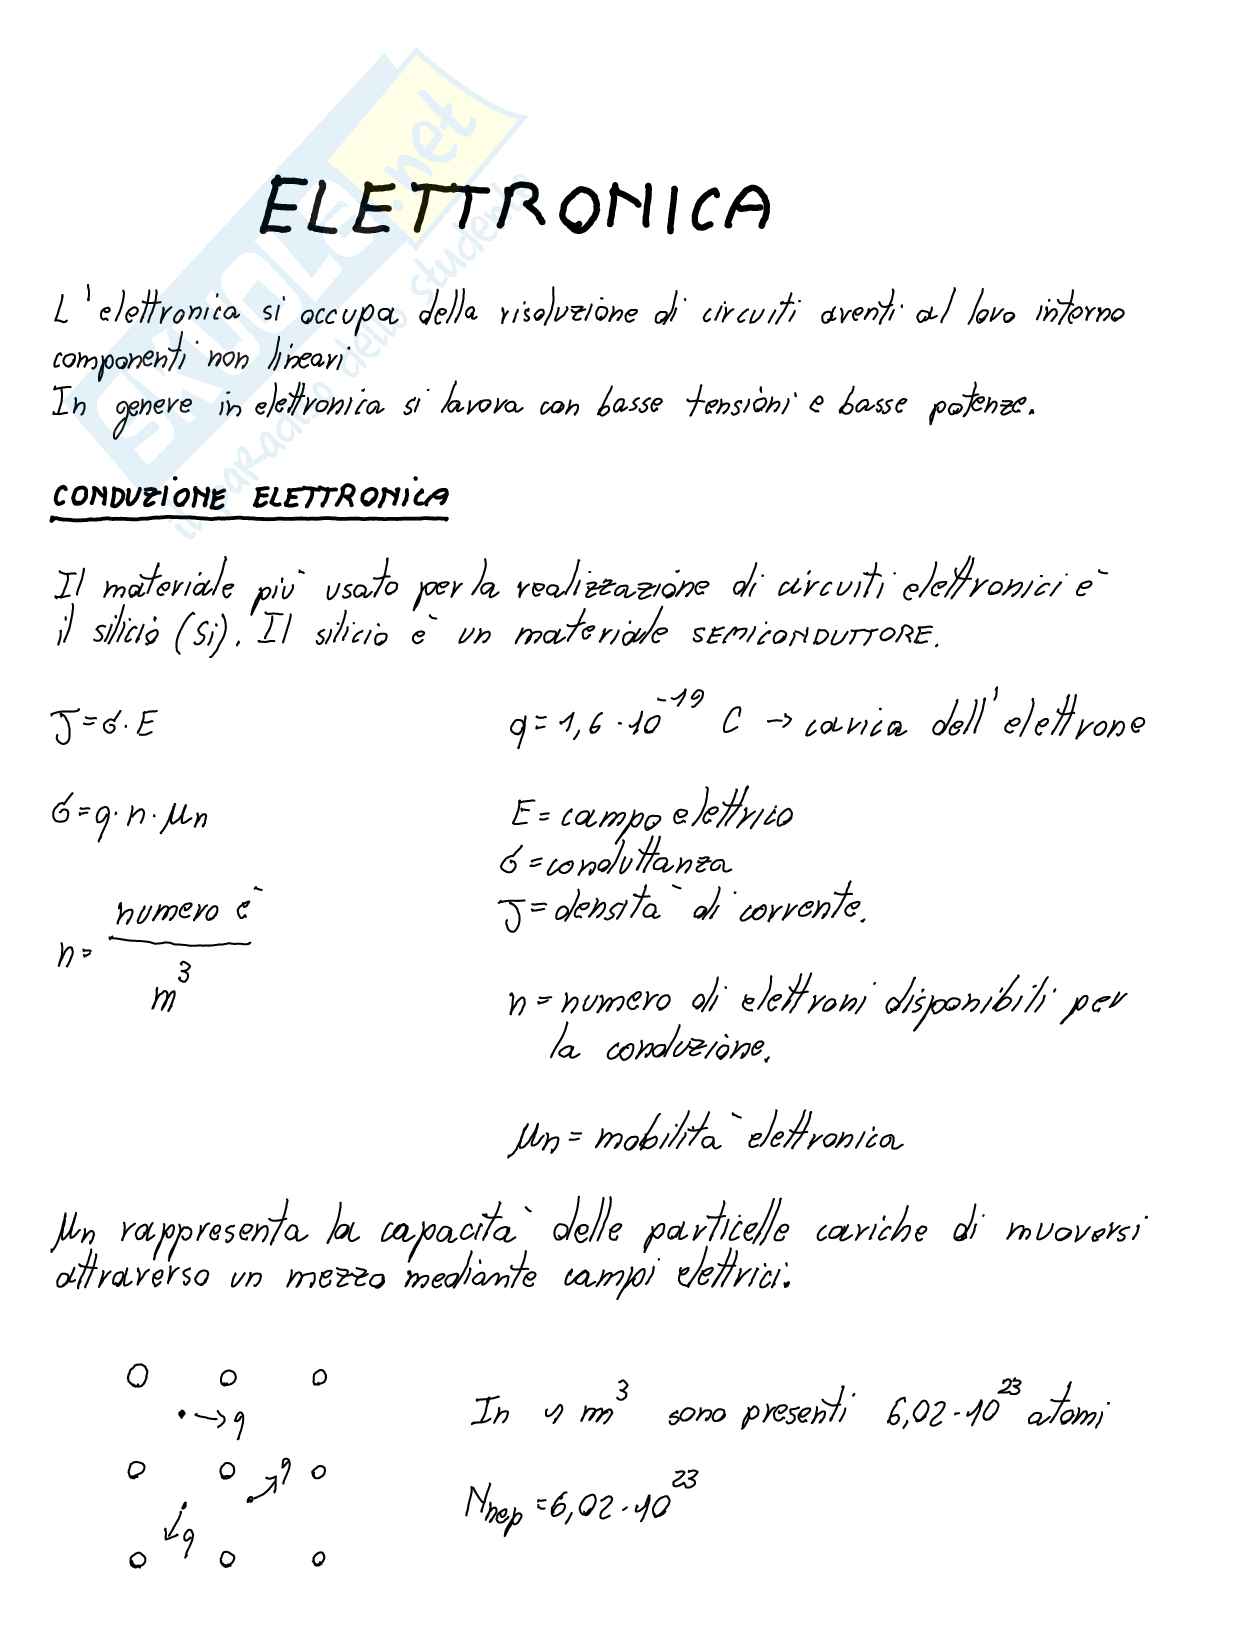 SKUOLA.net
il paradiso dello studente
ELETTRONICA
L'elettronica si occupa della risoluzione di circuiti aventi al loro interno
componenti non lineari
In genere in elettronica si lavora con basse tensioni e basse potenze.
CONDUZIONE ELETTRONICA
Il materiale più usato per la realizzazione di circuiti elettronici è
il silicio (Si). Il silicio è un materiale SEMICONDUTTORE.
J=σ·E
q=1,6·10⁻¹⁹ C → carica dell'elettrone
σ=q·n·μn
E= campo elettrico
σ=conduttanza
J=densità di corrente.
n= numero e⁻ / m³
n=numero di elettroni disponibili per
la conduzione.
μn= mobilità elettronica
μn rappresenta la capacità delle particelle cariche di muoversi
attraverso un mezzo mediante campi elettrici.
→q
In 1 m³ sono presenti 6,02·10²³ atomi
q
q
Nnep =6,02·10²³